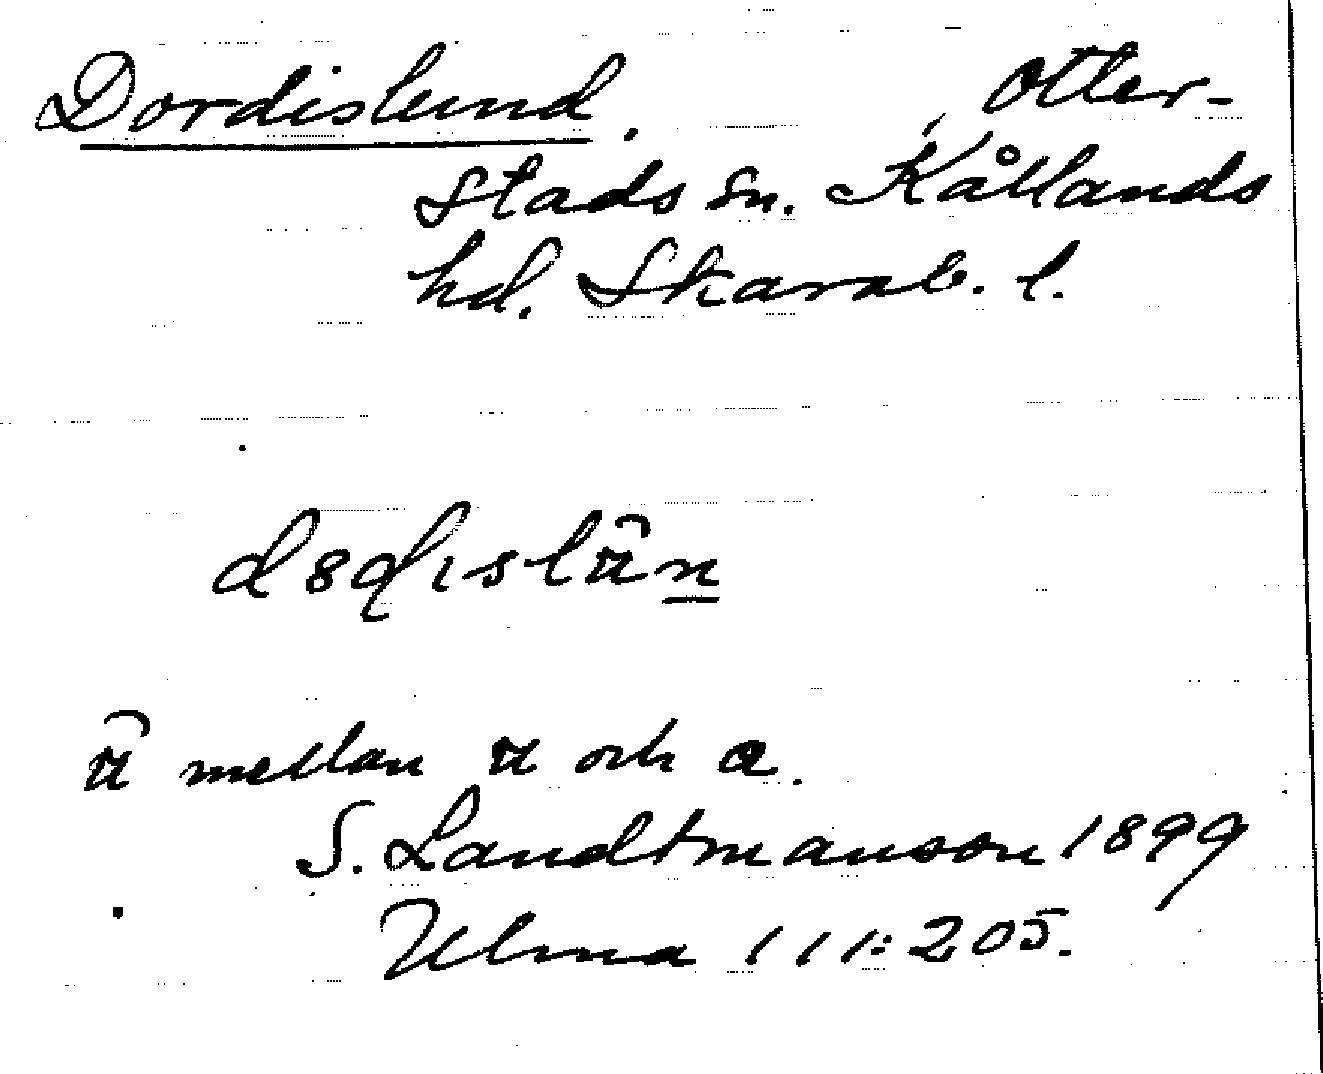 Dordislund. Otter-
stads sn. Kållands
hd. Skarab. l.
mellan och
S. Landtmanson 1899
Ulma 111:205.